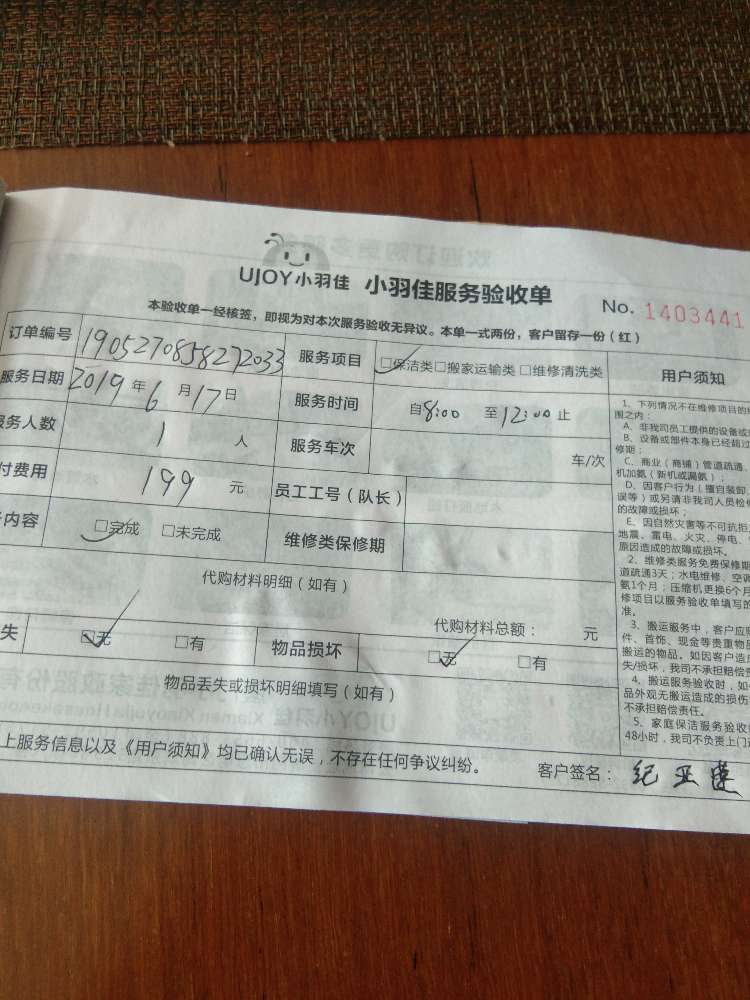 UJOY小羽佳 小羽佳服务验收单 No. 1403441
本验收单一经核签，即视为对本次服务验收无异议。本单一式两份，客户留存一份（红）
订单编号 1905270858272033 服务项目 □保洁类□搬家运输类□维修清洗类 用户须知
服务日期 2019年6月17日 服务时间 自8:00 至12:00止
务人数 1 人 服务车次 车/次
付费用 199 元 员工工号（队长）
内容 □完成 □未完成 维修类保修期
代购材料明细（如有）
代购材料总额： 元
失 □无 □有 物品损坏 □无 □有
物品丢失或损坏明细填写（如有）
上服务信息以及《用户须知》均已确认无误，不存在任何争议纠纷。 客户签名：纪亚
1、下列情况不在维修项目的
围之内：
A、非我司员工提供的设备或
B、设备或部件本身已经超过
修期；
C、商业（商铺）管道疏通、
机加氨（新机或漏氨）；
D、因客户行为（擅自装卸、
误等）或另请非我司人员检修
的故障或损坏；
E、因自然灾害等不可抗拒
地震、雷电、火灾、停电、
原因造成的故障或损坏。
2、维修类服务免费保修期
道疏通3天；水电维修、空调
氨1个月；压缩机更换6个月
修项目以服务验收单填写的
准。
3、搬运服务中，客户应
件、首饰、现金等贵重物品
搬运的物品。如因客户造
失/损坏，我司不承担赔偿责
4、搬运服务验收时，如
品外观无搬运造成的损伤
不承担赔偿责任。
5、家庭保洁服务验收
48小时，我司不负责上门